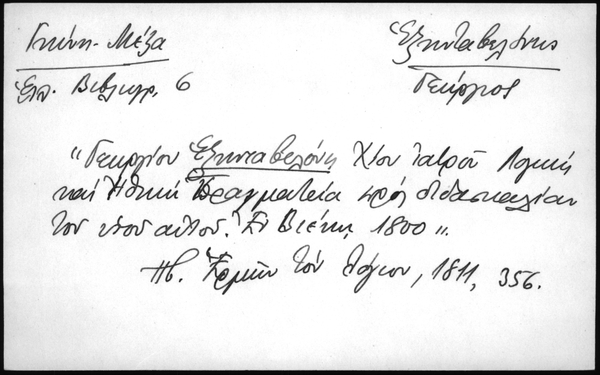 Γκίνη - Μέξα
Ἑλλ. Βιβλιογρ. 6
Ἐξηνταβελόνης
Γεώργιος
"Γεωργίου Ἐξηνταβελόνη Χίου ἰατροῦ Λογική
καί Ἠθική Πραγματεία πρός διδασκαλίαν
τοῦ υἱοῦ αὐτοῦ. Ἐν Βιέννῃ, 1800".
Πβ. Ἑρμῆν τόν Λόγιον, 1811, 356.